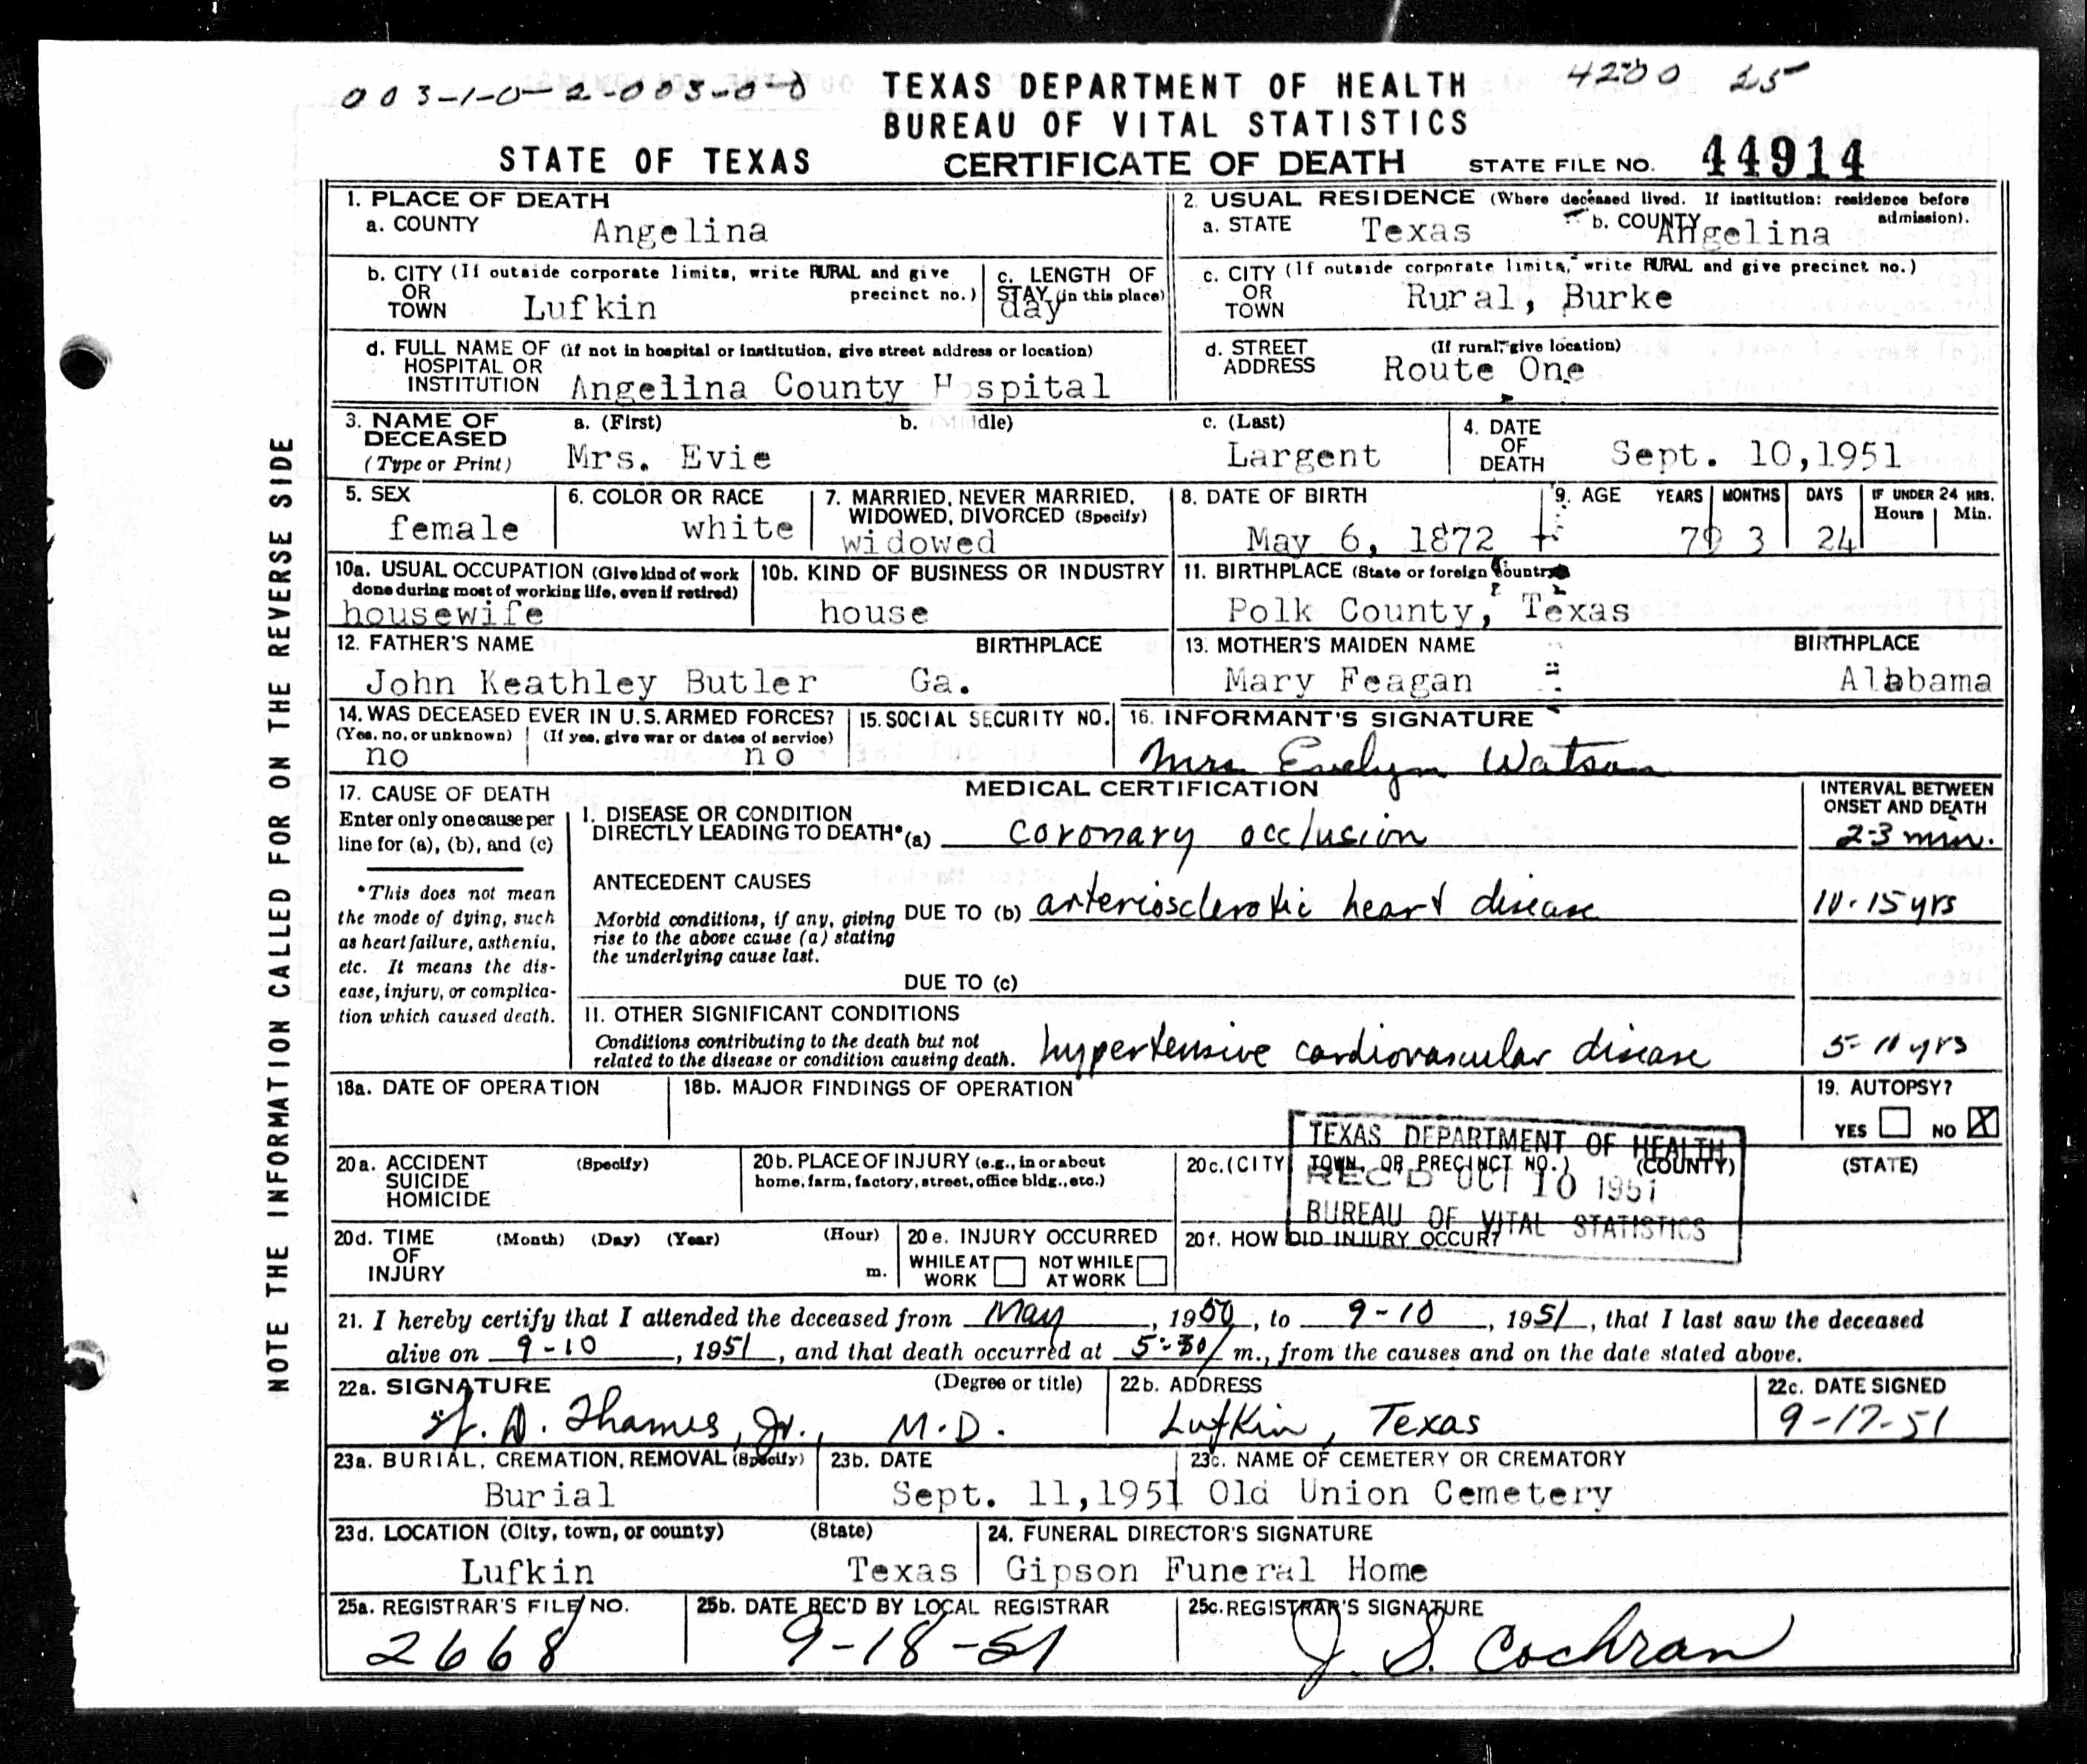 003-1-0-2-003-0-0
TEXAS DEPARTMENT OF HEALTH
4200 25
BUREAU OF VITAL STATISTICS
STATE OF TEXAS CERTIFICATE OF DEATH STATE FILE NO. 44914
NOTE THE INFORMATION CALLED FOR ON THE REVERSE SIDE
1. PLACE OF DEATH
a. COUNTY Angelina
2. USUAL RESIDENCE (Where deceased lived. If institution: residence before admission).
a. STATE Texas b. COUNTY Angelina
b. CITY (If outside corporate limits, write RURAL and give precinct no.)
OR
TOWN Lufkin
c. LENGTH OF
STAY (in this place)
day
c. CITY (If outside corporate limits, write RURAL and give precinct no.)
OR
TOWN Rural, Burke
d. FULL NAME OF (if not in hospital or institution, give street address or location)
HOSPITAL OR
INSTITUTION Angelina County H spital
d. STREET (If rural, give location)
ADDRESS Route One
3. NAME OF a. (First) b. (Middle) c. (Last)
DECEASED
(Type or Print) Mrs. Evie Largent
4. DATE
OF
DEATH Sept. 10,1951
5. SEX
female
6. COLOR OR RACE
white
7. MARRIED, NEVER MARRIED,
WIDOWED, DIVORCED (Specify)
widowed
8. DATE OF BIRTH
May 6, 1872
9. AGE YEARS MONTHS DAYS IF UNDER 24 HRS.
Hours Min.
79 3 24
10a. USUAL OCCUPATION (Give kind of work
done during most of working life, even if retired)
housewife
10b. KIND OF BUSINESS OR INDUSTRY
house
11. BIRTHPLACE (State or foreign country)
Polk County, Texas
12. FATHER'S NAME BIRTHPLACE
John Keathley Butler Ga.
13. MOTHER'S MAIDEN NAME BIRTHPLACE
Mary Feagan Alabama
14. WAS DECEASED EVER IN U.S. ARMED FORCES?
(Yes, no, or unknown) (If yes, give war or dates of service)
no no
15. SOCIAL SECURITY NO.
16. INFORMANT'S SIGNATURE
Mrs Evelyn Watson
17. CAUSE OF DEATH
Enter only one cause per
line for (a), (b), and (c)
*This does not mean
the mode of dying, such
as heart failure, asthenia,
etc. It means the dis-
ease, injury, or complica-
tion which caused death.
MEDICAL CERTIFICATION
INTERVAL BETWEEN
ONSET AND DEATH
I. DISEASE OR CONDITION
DIRECTLY LEADING TO DEATH* (a) coronary occlusion 2-3 min.
ANTECEDENT CAUSES
Morbid conditions, if any, giving DUE TO (b) arteriosclerotic heart disease 10-15 yrs
rise to the above cause (a) stating
the underlying cause last.
DUE TO (c)
II. OTHER SIGNIFICANT CONDITIONS
Conditions contributing to the death but not
related to the disease or condition causing death. hypertensive cardiovascular disease 5-10 yrs
18a. DATE OF OPERATION
18b. MAJOR FINDINGS OF OPERATION
19. AUTOPSY?
YES NO X
TEXAS DEPARTMENT OF HEALTH
REC'D OCT 10 1951
BUREAU OF VITAL STATISTICS
20a. ACCIDENT (Specify)
SUICIDE
HOMICIDE
20b. PLACE OF INJURY (e.g., in or about
home, farm, factory, street, office bldg., etc.)
20c. (CITY TOWN, OR PRECINCT NO.) (COUNTY) (STATE)
20d. TIME (Month) (Day) (Year) (Hour)
OF
INJURY m.
20e. INJURY OCCURRED
WHILE AT WORK NOT WHILE AT WORK
20f. HOW DID INJURY OCCUR?
21. I hereby certify that I attended the deceased from May, 1950, to 9-10, 1951, that I last saw the deceased
alive on 9-10, 1951, and that death occurred at 5:30 m., from the causes and on the date stated above.
22a. SIGNATURE (Degree or title)
W. D. Thames, Jr., M.D.
22b. ADDRESS
Lufkin, Texas
22c. DATE SIGNED
9-17-51
23a. BURIAL, CREMATION, REMOVAL (Specify)
Burial
23b. DATE
Sept. 11,1951
23c. NAME OF CEMETERY OR CREMATORY
Old Union Cemetery
23d. LOCATION (City, town, or county) (State)
Lufkin Texas
24. FUNERAL DIRECTOR'S SIGNATURE
Gipson Funeral Home
25a. REGISTRAR'S FILE NO.
2668
25b. DATE REC'D BY LOCAL REGISTRAR
9-18-51
25c. REGISTRAR'S SIGNATURE
J. S. Cochran